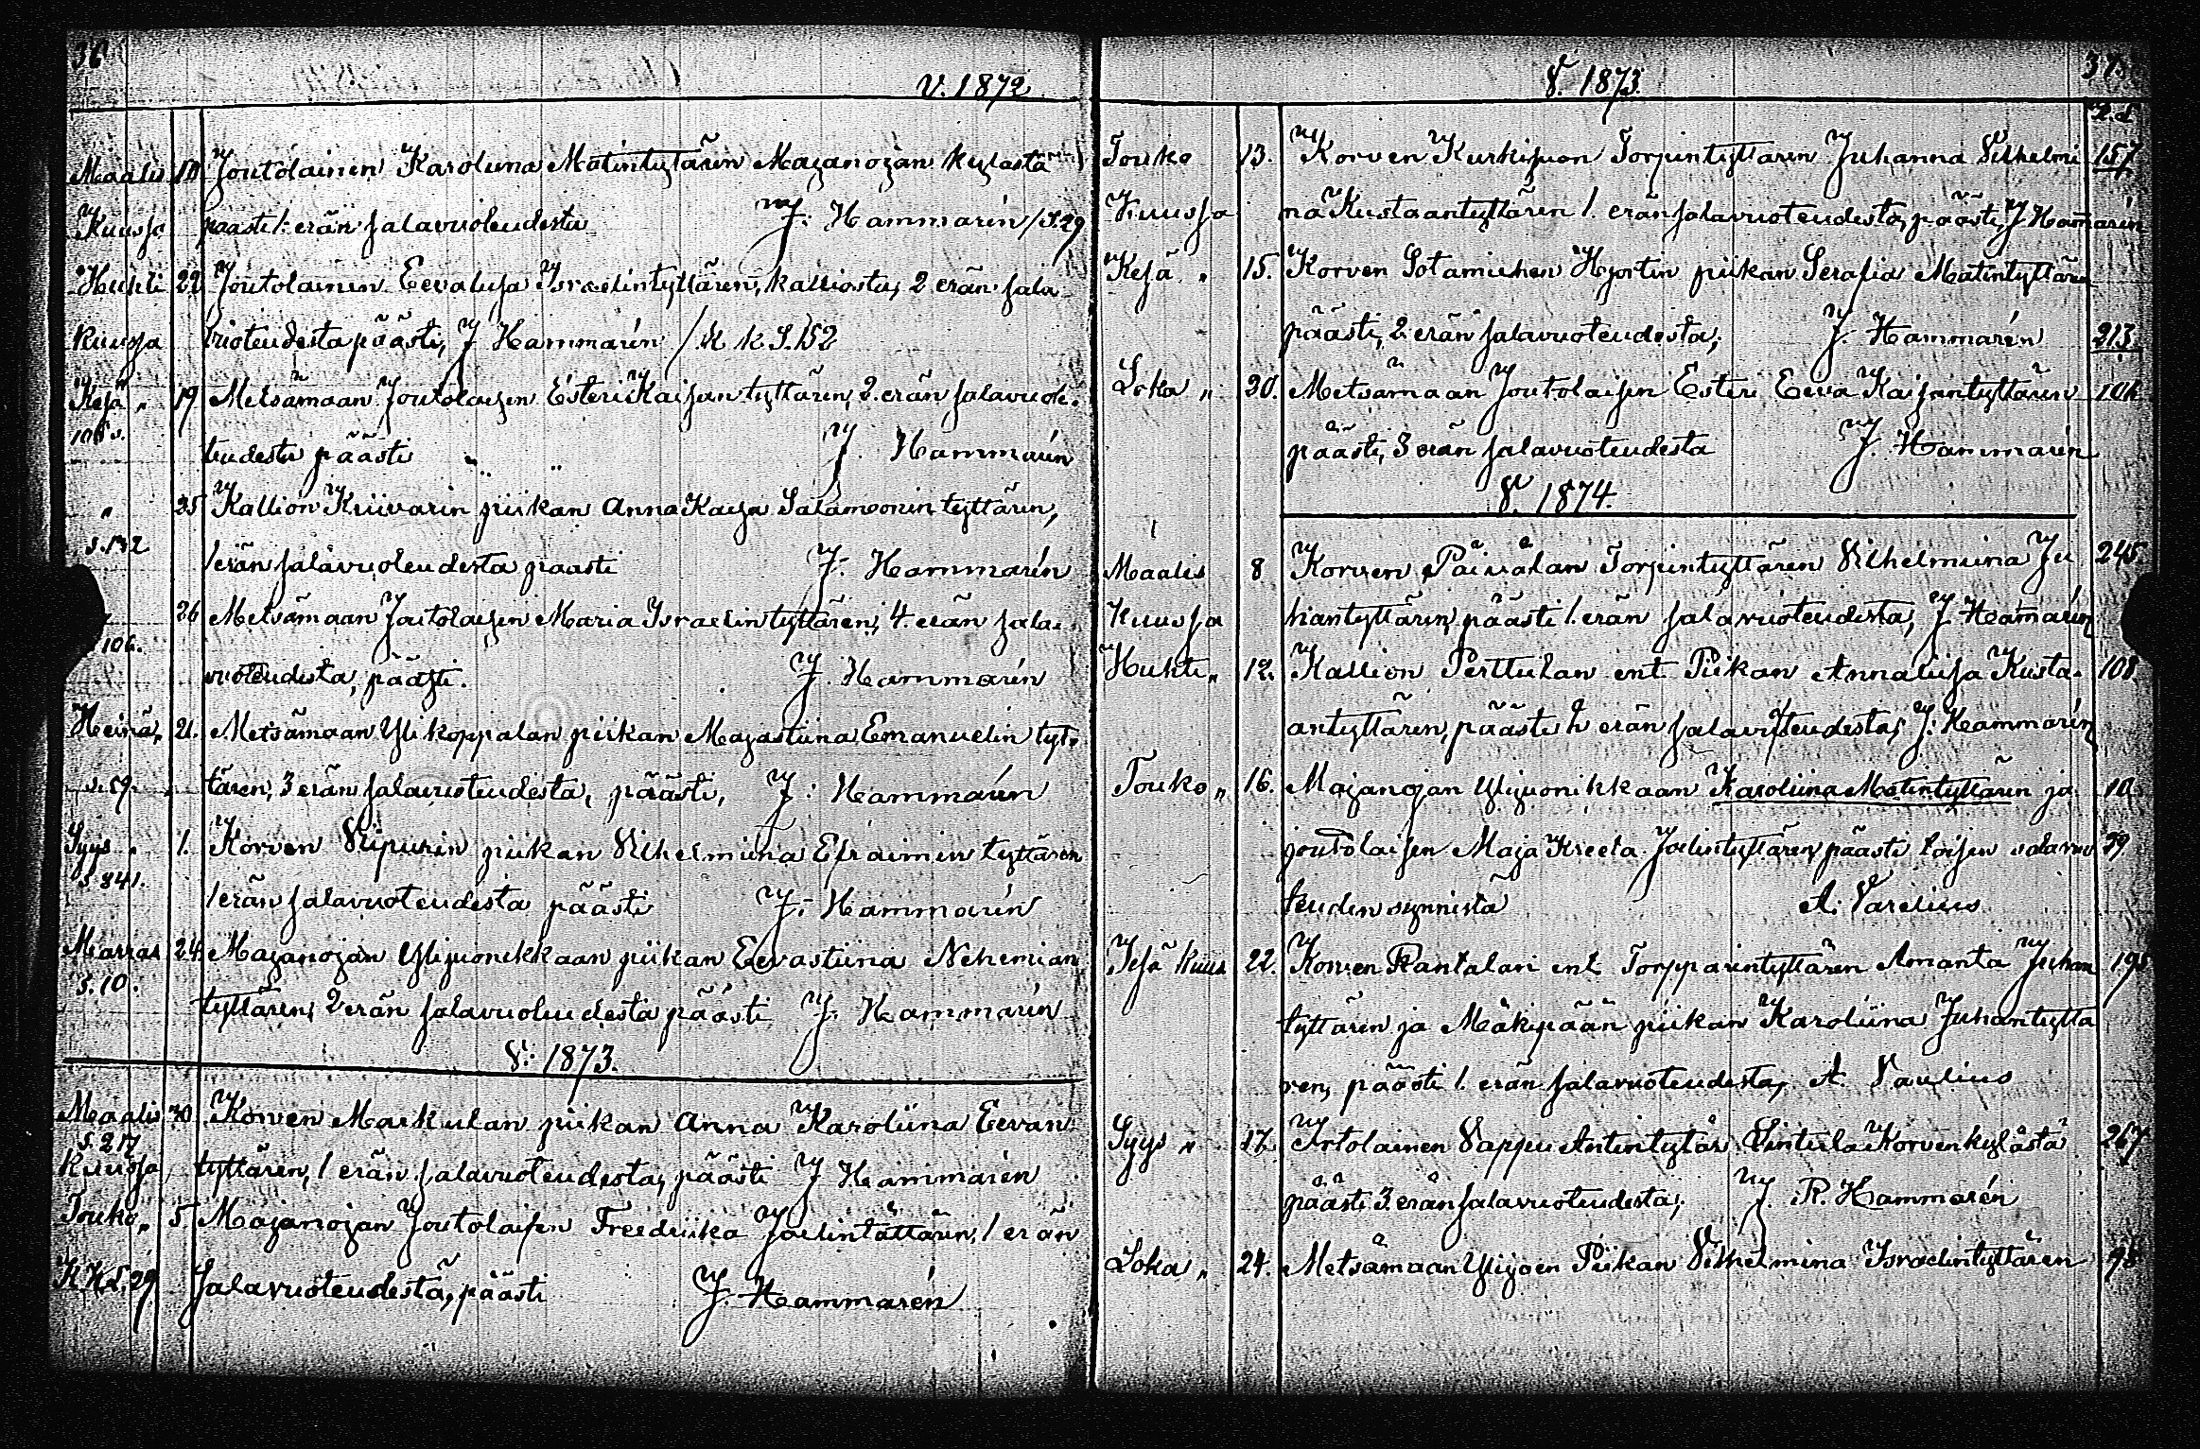 36
V. 1872
Maalis 10. Joutolainen Karoliina Matintytären Majanojan kylästä
Kuussa päästi 1. erän salavuoteudesta J. Hammarén /S.29
Huhti 22 Joutolainen Eevaluisa Israelintyttären, kalliosta, 2 erän sala
kuussa vuoteudesta päästi, J Hammarén /K k S.152
Kesä „ 19 Metsämaan Joutolaisen Esteri Kaisantyttären, 2. erän salavuo
106 s. teudesta päästi J. Hammarén
„ 25 Kallion Kiivarin piikan Anna Kaisa Salamoonin tyttären,
s. 132 1 erän salavuoteudesta päästi J. Hammarén
26 Metsämaan Joutolaisen Maria Israelintyttären, 4. erän sala
106. vuoteudesta, päästi. J. Hammarén
Heinä„ 21. Metsämaan Ylikoppalan piikan Majastiina Emanuelin tyt„
s. 59. tären, 3 erän salavuoteudesta, päästi, J. Hammarén
Syys „ 1. Korven Viipurin piikan Vilhelmiina Efraimin tyttären
S. 841. 1 erän salavuoteudesta päästi J. Hammarén
Marras 24. Majanojan Ylijuonikkaan piikan Eevastiina Nehemian
S. 10. tyttären, 2 erän salavuoteudesta päästi J. Hammarén
V. 1873.
Maalis 30. Korven Markulan piikan Anna Karoliina Eevan
S. 217
Kuussa tyttären, 1 erän salavuoteudesta, päästi J Hammarén
Touko„ 5 Majanojan Joutolaisen Freedriika Joelintättären, 1 erän
K.K.S. 29 Salavuoteudesta, päästi J. Hammarén
37.
V. 1873.
Touko 13. Korven Kurkisuon Torpintyttären Juhanna Vilhelmi 157
Kuussa na Kustaantyttären 1. erän salavuoteudesta, päästi, J Hammarén
Kesä „ 15. Korven Sotamiehen Hjortin piikan Serafia Matintyttären
päästi, 2 erän salavuoteudesta, J. Hammarén 213
Loka „ 20. Metsämaan Joutolaisen Esteri Eeva Kaisantyttären 106
päästi, 3 erän salavuoteudesta J. Hammarén
V. 1874.
Maalis 8 Korven Päivälan Torpintyttären Vilhelmiina Ju 245
Kuussa hantyttären, päästi 1. erän salavuoteudesta, J. Hammarén
Huhti„ 12. Kallion Perttulan ent. Piikan Annaluisa Kusta„ 108
antyttären, päästi erän salavuoteudesta, J. Hammarén
Touko„ 16. Majanojan Ylijuonikkaan Karoliina Matintyttären ja 10.
joutolaisen Maja Kreeta Joelintyttären, päästi toisen salavuo 39
teuden synnistä A. Varelius
Kesä Kuus 22. Korven Rantalan ent. Torpparintyttären Amanta Juhan 195
tyttären ja Mäkipään piikan Karoliina Juhantyttä
ren, päästi 1. erän salavuoteudesta, A. Varelius
Syys „ 17. Irtolainen Vappu Antintytär Vintula Korvenkylästä 267
päästi 3 erän salavuoteudesta, J. R. Hammarén
Loka „ 24. Metsämaan Ylijoen Piikan Vilhelmina Israelintyttären 98